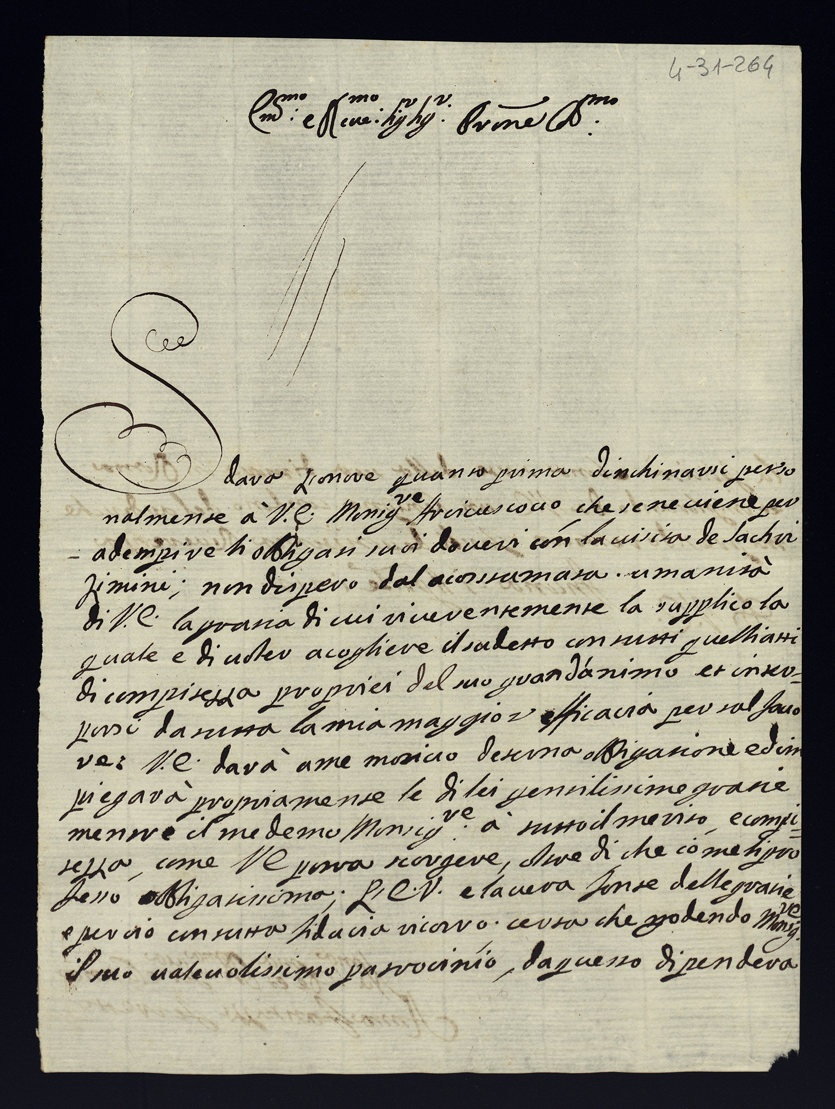 4-31-264
Em.mo e R.mo Sig.r Sig.r Prone Col.mo
Si darà l'onore quanto prima d'inchinarsi perso
nalmente à V.E. Monsig.re Arciuescouo, che se ne uiene per
adempire li obligati suoi doueri con la uisita de Sachri
limini; non dispero dal acostumata umanità
di V.E. la gratia di cui riuerentemente la supplico la
quale e di uoler acogliere il sudetto con tutti quelli atti
di compitezza proprici del suo grand'animo et inter-
porsi da tutta la mia maggior efficacia per tal fauo
re: V.E. darà a me motiuo d'eterna obligatione ed im
piegarà propriamente le di lei gentilissime gratie
mentre il medemo Monsig.re à tutto il merito, e compi-
tezza, come VE potrà scorgere, oltre di che come li pro
fesso obligatissima; L'E.V. e la uera fonte delle gratie
e perciò con tutta fiducia ricorro. certa che godendo Monsig.re
il suo ualeuolissimo patrocinio, da questo dipenderà